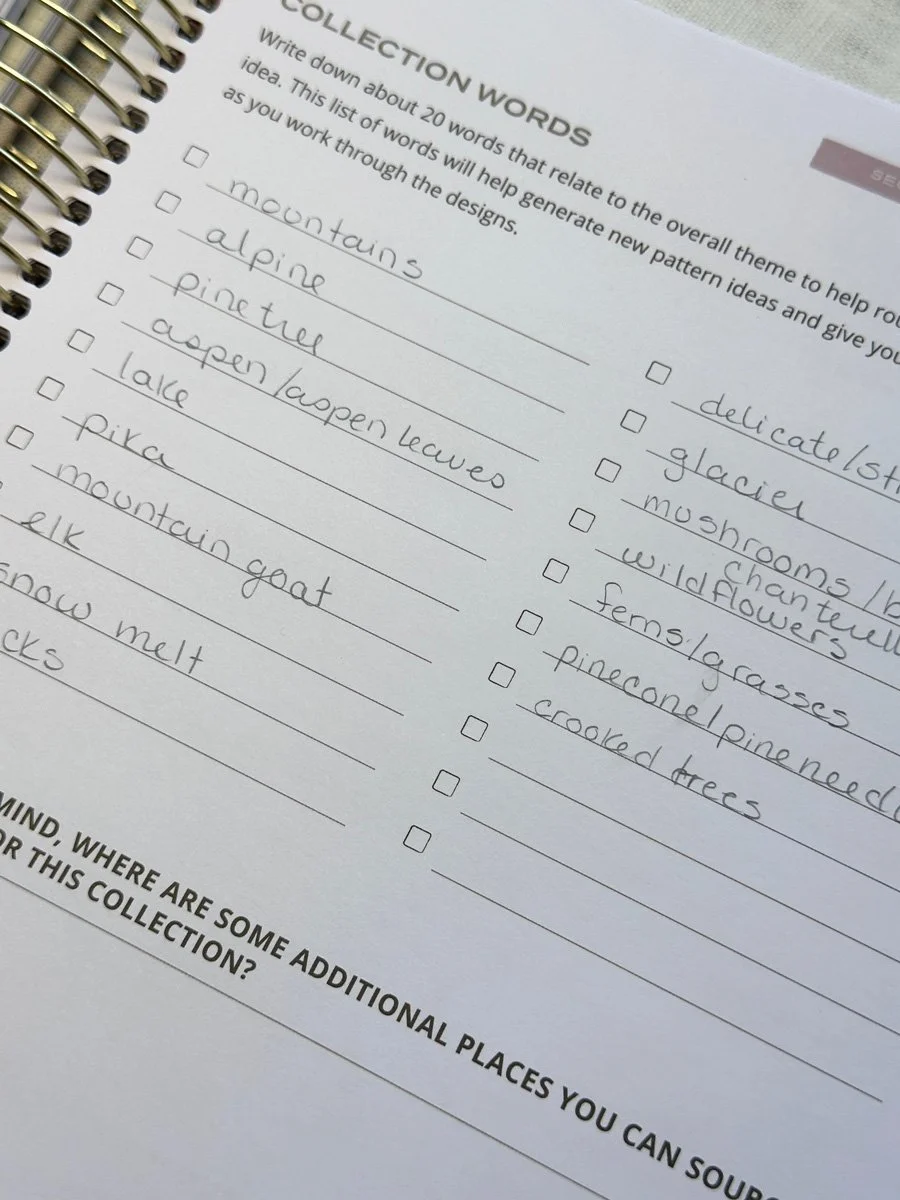 COLLECTION WORDS
Write down about 20 words that relate to the overall theme to help
idea. This list of words will help generate new pattern ideas and give you
as you work through the designs.
mountains
alpine
pine tree
aspen/aspen leaves
lake
pika
mountain goat
elk
snow melt
delicate/
glacier
mushrooms/
wildflowers
ferns/grasses
pinecone/pine
crooked trees
MIND, WHERE ARE SOME ADDITIONAL PLACES YOU CAN
THIS COLLECTION?